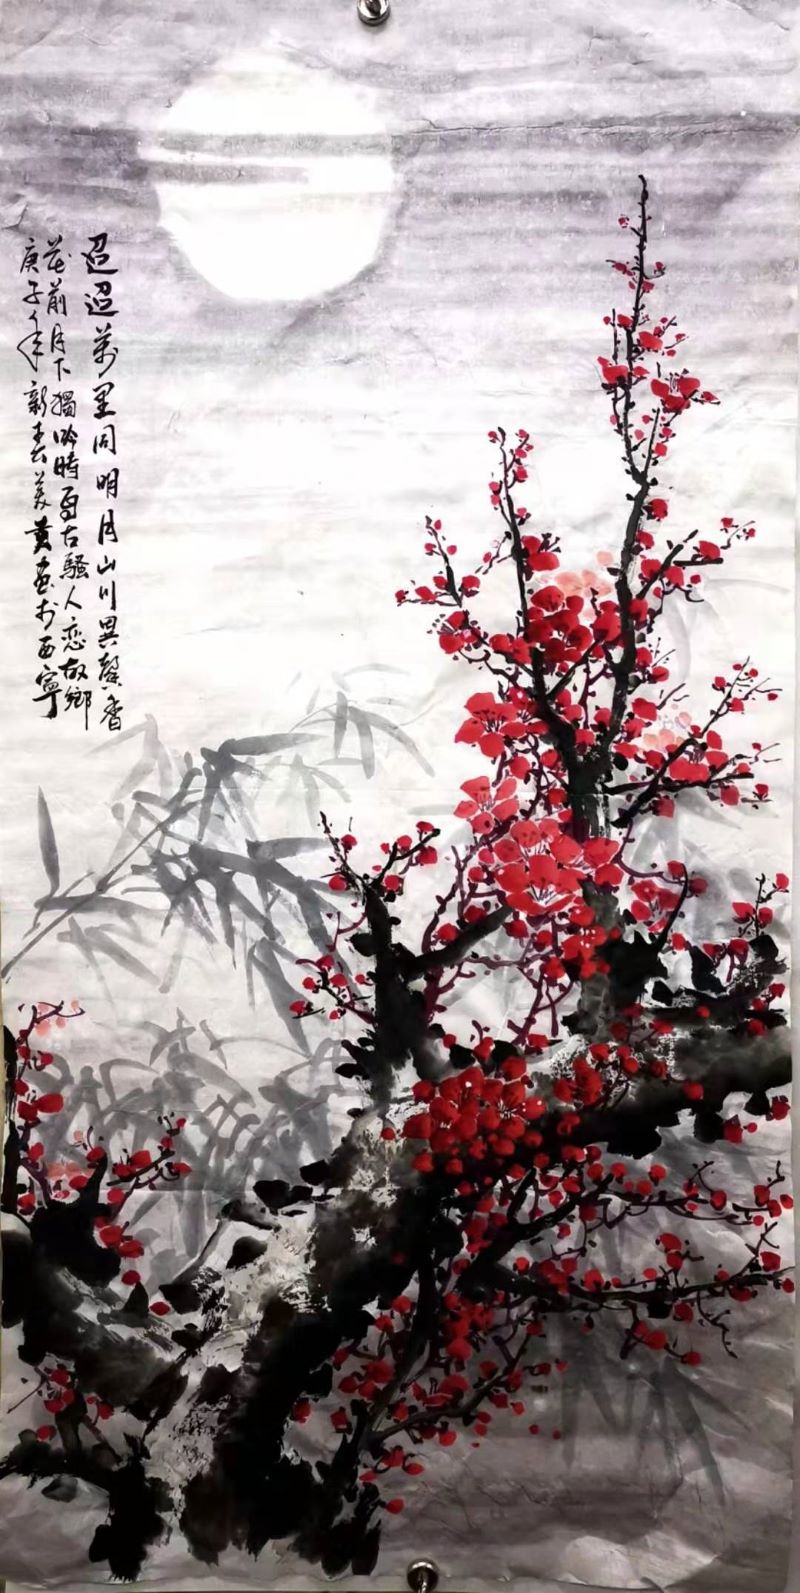 迢迢萬里同明月山川異馨香
花前月下獨吟時 古騷人戀故鄉
庚子年新春 黄畫於西寧